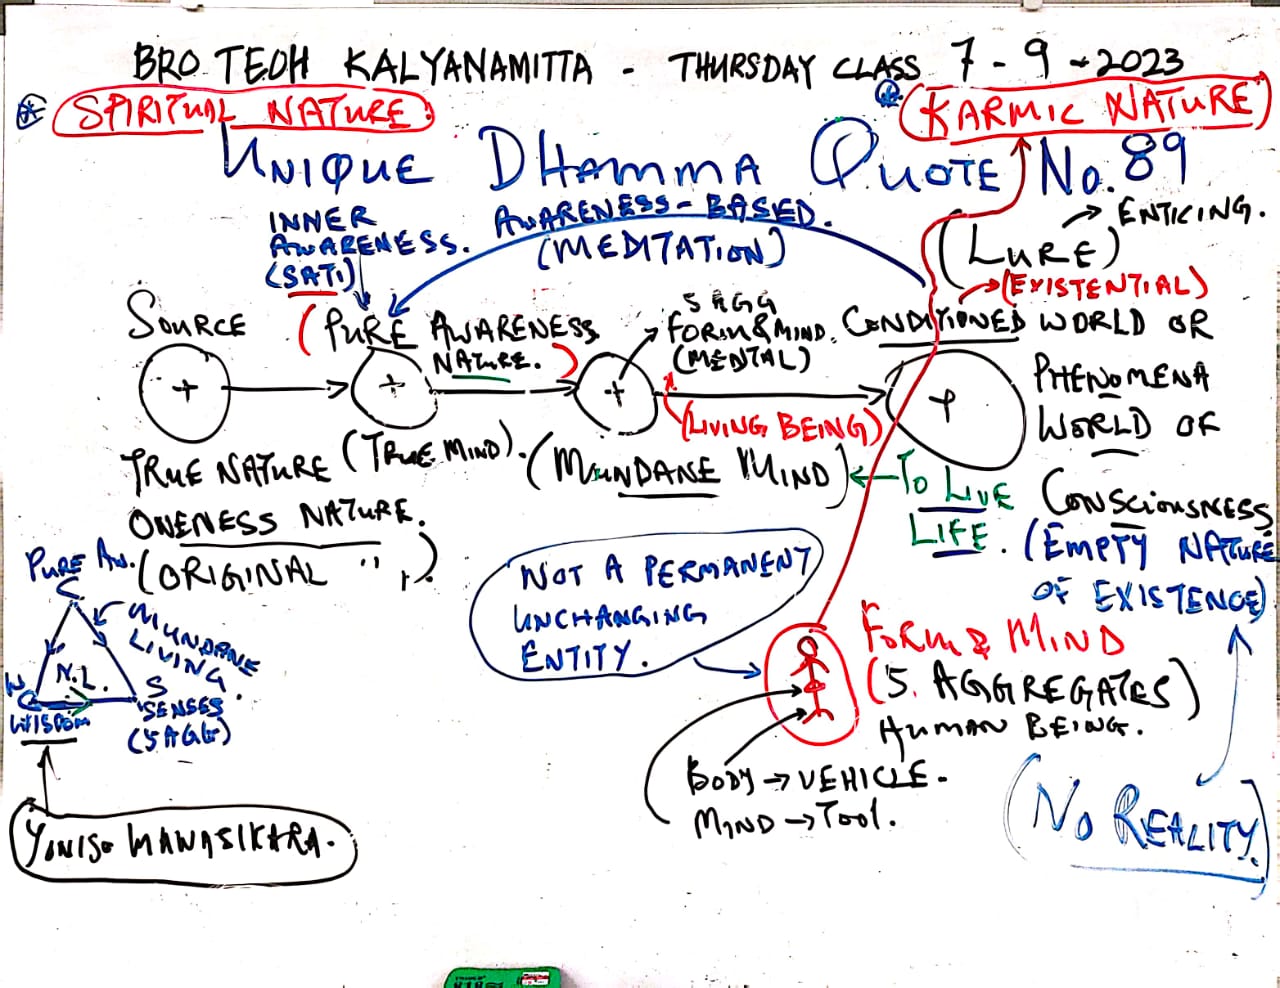 BRO TEOH KALYANAMITTA - THURSDAY CLASS 7-9-2023
SPIRITUAL NATURE.
KARMIC NATURE
UNIQUE DHAMMA QUOTE NO. 89
INNER
AWARENESS.
(SATI)
AWARENESS-BASED.
(MEDITATION)
→ ENTICING.
(LURE)
→(EXISTENTIAL)
SOURCE
(PURE AWARENESS
NATURE.)
5 AGG
FORM & MIND.
(MENTAL)
CONDITIONED WORLD OR
PHENOMENA
WORLD OF
CONSCIOUSNESS
(EMPTY NATURE
OF EXISTENCE)
(LIVING BEING)
TRUE NATURE
(TRUE MIND).
(MUNDANE MIND)
←TO LIVE
LIFE.
ONENESS NATURE.
(ORIGINAL " ,)
PURE AW.
C
MUNDANE
LIVING.
N.L.
W
WISDOM
S
SENSES
(5 AGG)
YONISO MANASIKARA.
NOT A PERMANENT
UNCHANGING
ENTITY.
FORM & MIND
(5. AGGREGATES)
HUMAN BEING.
BODY → VEHICLE.
MIND → TOOL.
(NO REALITY.)